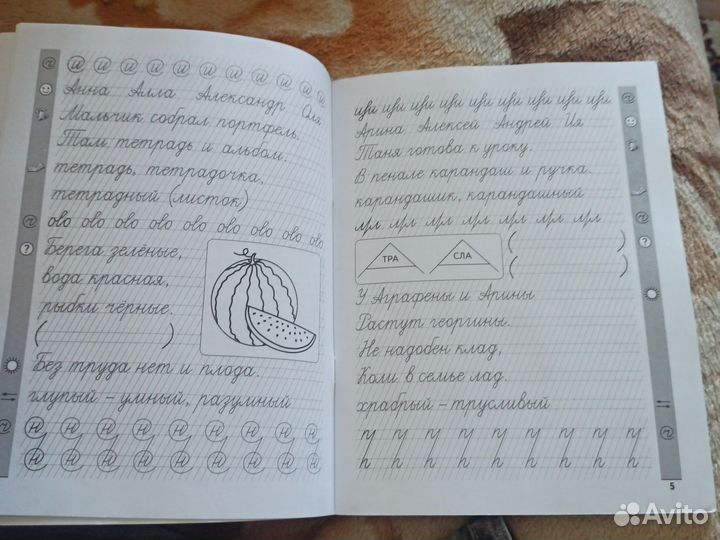 и и и и и и и и и и и
Анна Алла Александр Оля
Мальчик собрал портфель.
Там тетрадь и альбом.
тетрадь, тетрадочка,
тетрадный (листок)
ово ово ово ово ово ово ово ово ово
Берега зелёные,
вода красная,
рыбки чёрные.
( )
Без труда нет и плода.
глупый – умный, разумный
н н н н н н н н н
н н н н н н н н н
Арина Алексей Андрей Ия
Таня готова к уроку.
В пенале карандаш и ручка.
карандашик, карандашный
ТРА СЛА ( )
( )
У Аграфены и Арины
Растут георгины.
Не надобен клад,
Коли в семье лад.
храбрый – трусливый
5
Avito